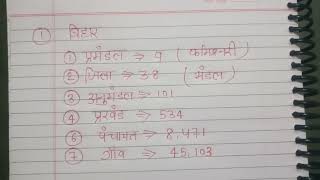 ① बिहार
① प्रमंडल ⇒ 9 (कमिश्नरी)
② जिला ⇒ 38 (मंडल)
③ अनुमंडल ⇒ 101
④ प्रखंड ⇒ 534
⑥ पंचायत ⇒ 8,471
⑦ गाँव ⇒ 45,103